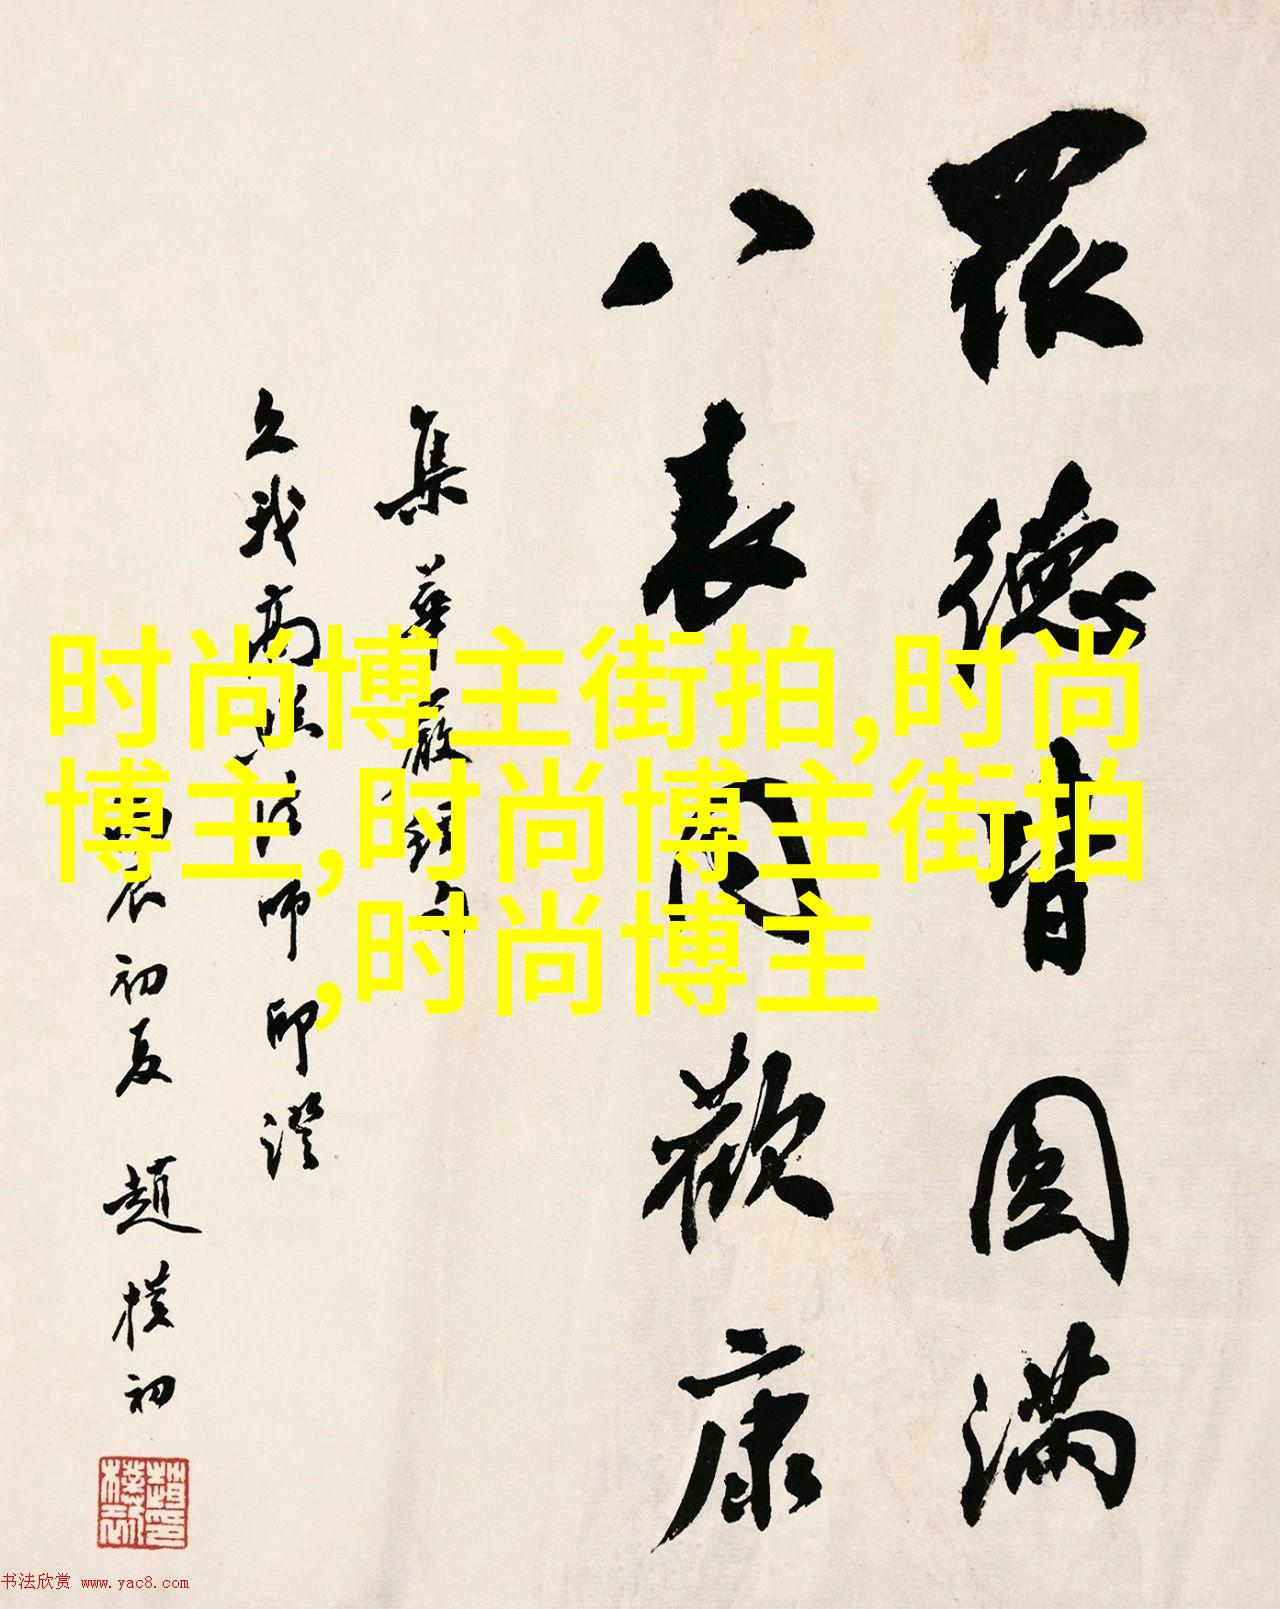 眾德皆圓滿
八表同歡康
集華嚴經句
久我高法師印證
辰初夏 趙樸初
时尚博主街拍,时尚
博主,时尚博主街拍
,时尚博主
书法欣赏 www.yac8.com